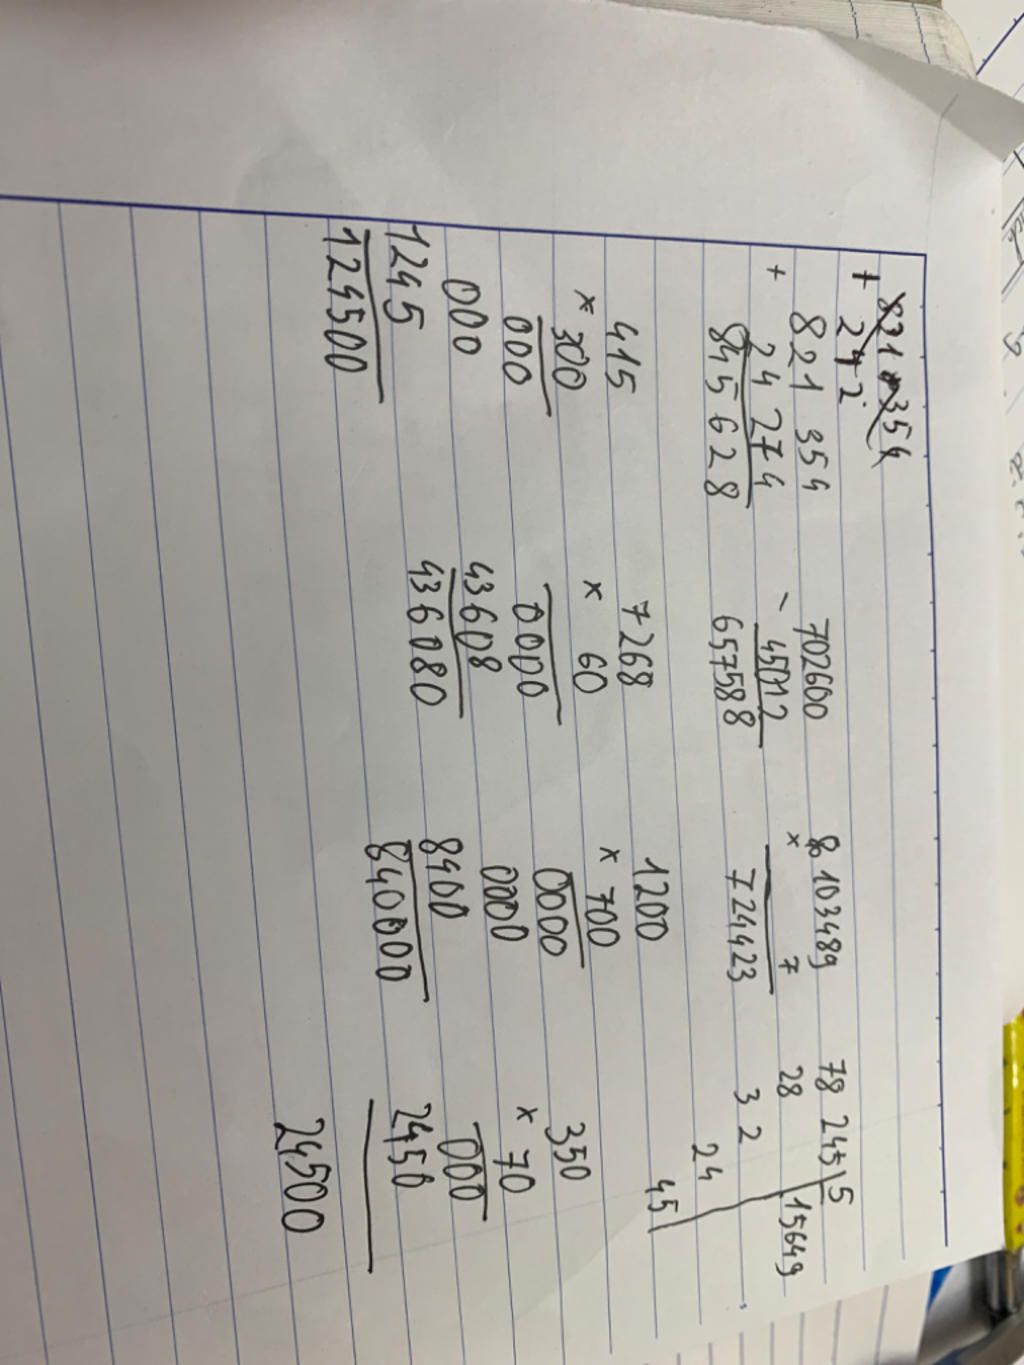 821 354
+ 242
821 354
+ 24 274
845 628
702600
- 45012
657588
103489
× 7
724423
78 245 | 5
28 15649
3 2
24
45
415
× 300
000
000
1245
124500
7268
× 60
0000
43608
436080
1200
× 700
0000
0000
8400
840000
350
× 70
000
2450
24500